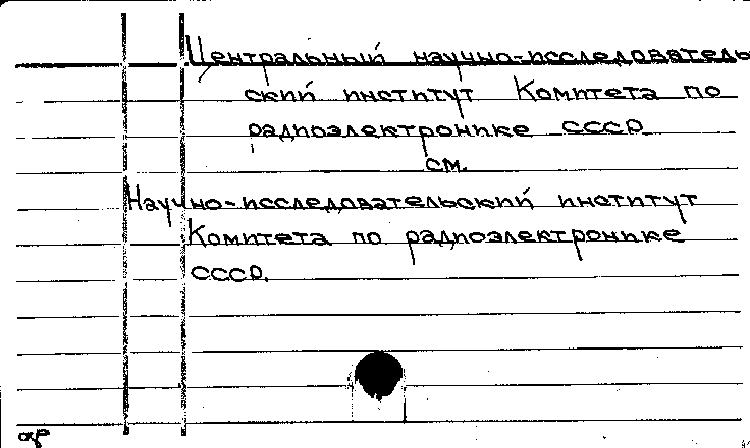 Центральный научно-исследователь
ский институт Комитета по
радиоэлектронике СССР
см.
Научно-исследовательский институт
Комитета по радиоэлектронике
СССР.